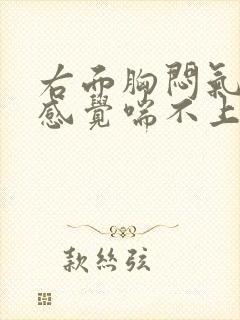 右而胸悶氣
感覺喘不上
款絲弦